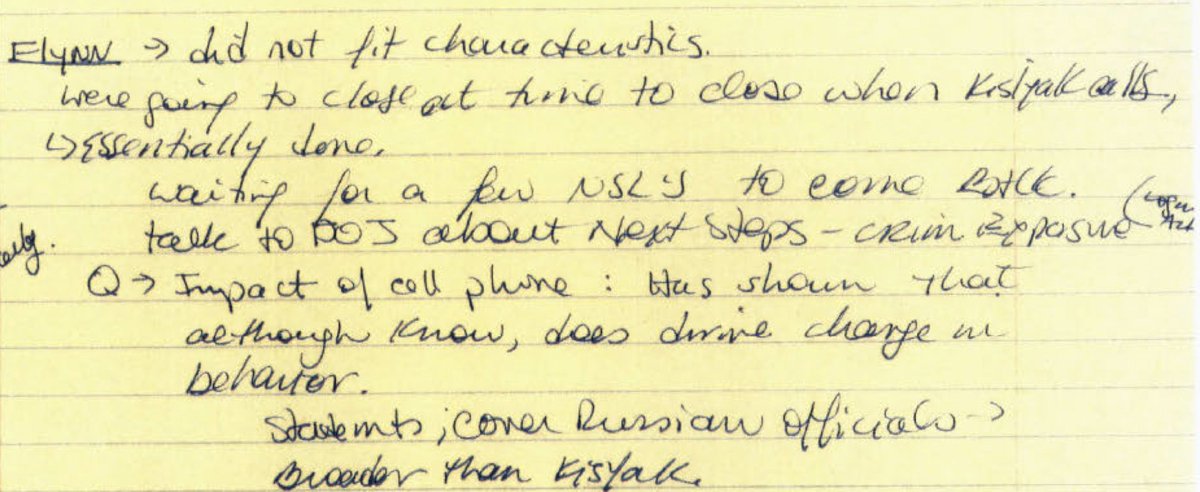 Flynn → did not fit characteristics.
were going to close at time to close when Kislyak calls,
↳ Essentially done.
waiting for a few NSL's to come Back.
talk to DOJ about Next Steps - crim Exposure (Logan Act
Q → Impact of cell phone : Has shown that
although know, does drive change in
behavior.
Statements ; cover Russian officials →
Broader than Kislyak.